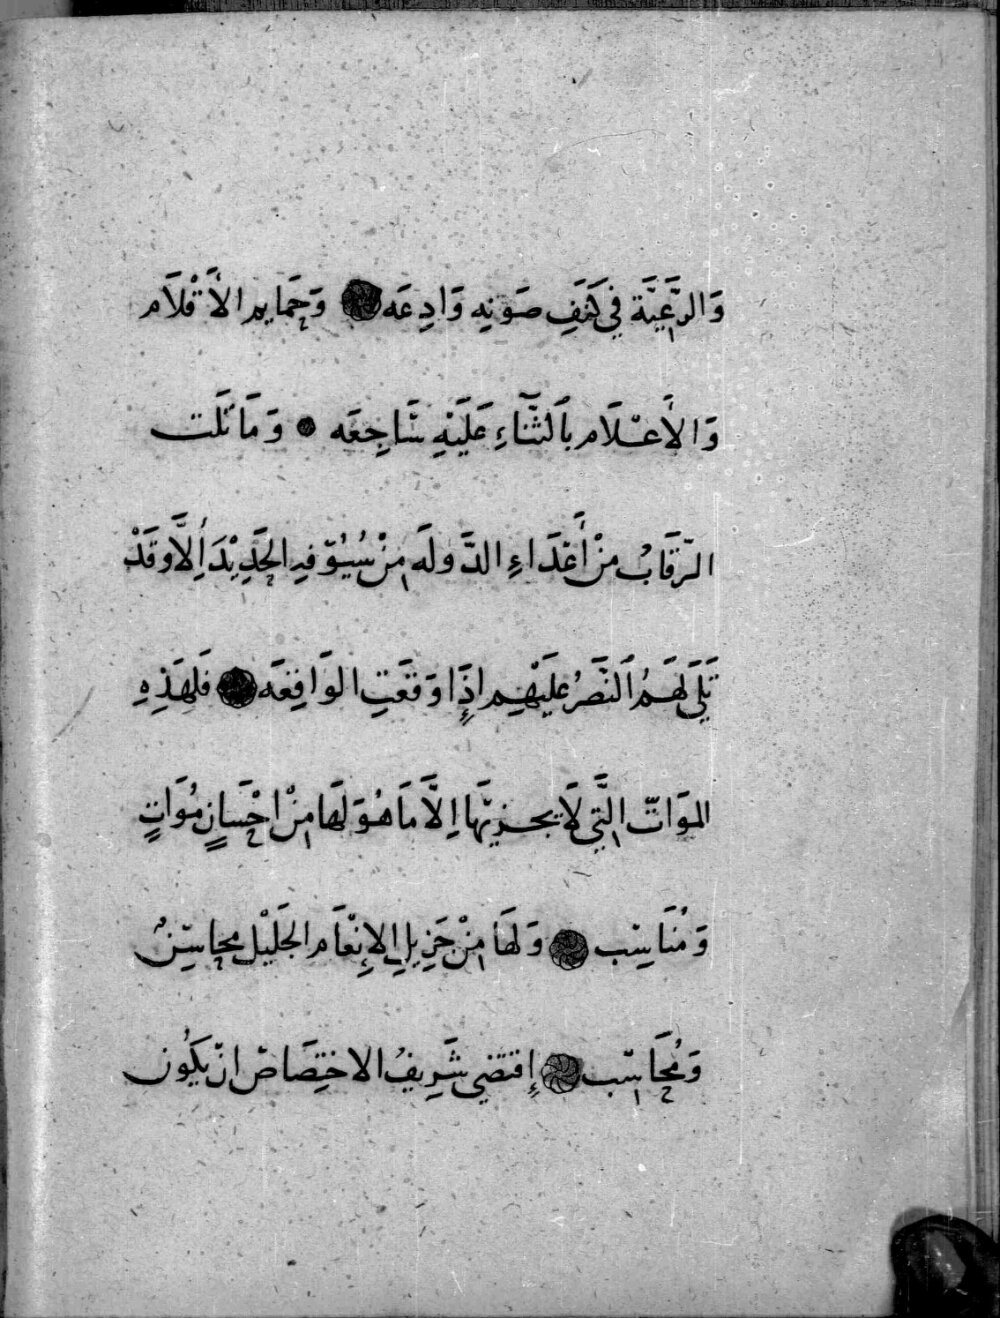 وَالرَّعِيَّة فِي كَنَفِ صَوَنِه وَادِعَه وَحَمَايم الأَقْلَام
وَالأَعْلَام بِالثَّنَاءِ عَلَيْهِ سَاجِعَه وَمَا تَلَت
الرِّقَابُ مِنْ أَعْدَاءِ الدَّولَه مِنْ سُيُوفِهِ الحَدِيْدَ اِلَّا وَقَدْ
تَلَى لَهَمُ النَصَرُ عَلَيْهِم اِذَا وَقَعَتِ الوَاقِعَه فَلِهَذِهِ
المَوَاتّ الَّتِي لَا يجزيهَا اِلَّا مَا هُوَ لَهَا مِنْ اِحْسَانٍ مُوَاتٍ
وَمُنَاسِب وَلَهَا مِنْ جَزِيلِ الاِنْعَام الجَلِيْل محاسِنُ
وَمُحَاسِب اِقتضي شَرِيفُ الاختِصَاصْ ان يَكُون